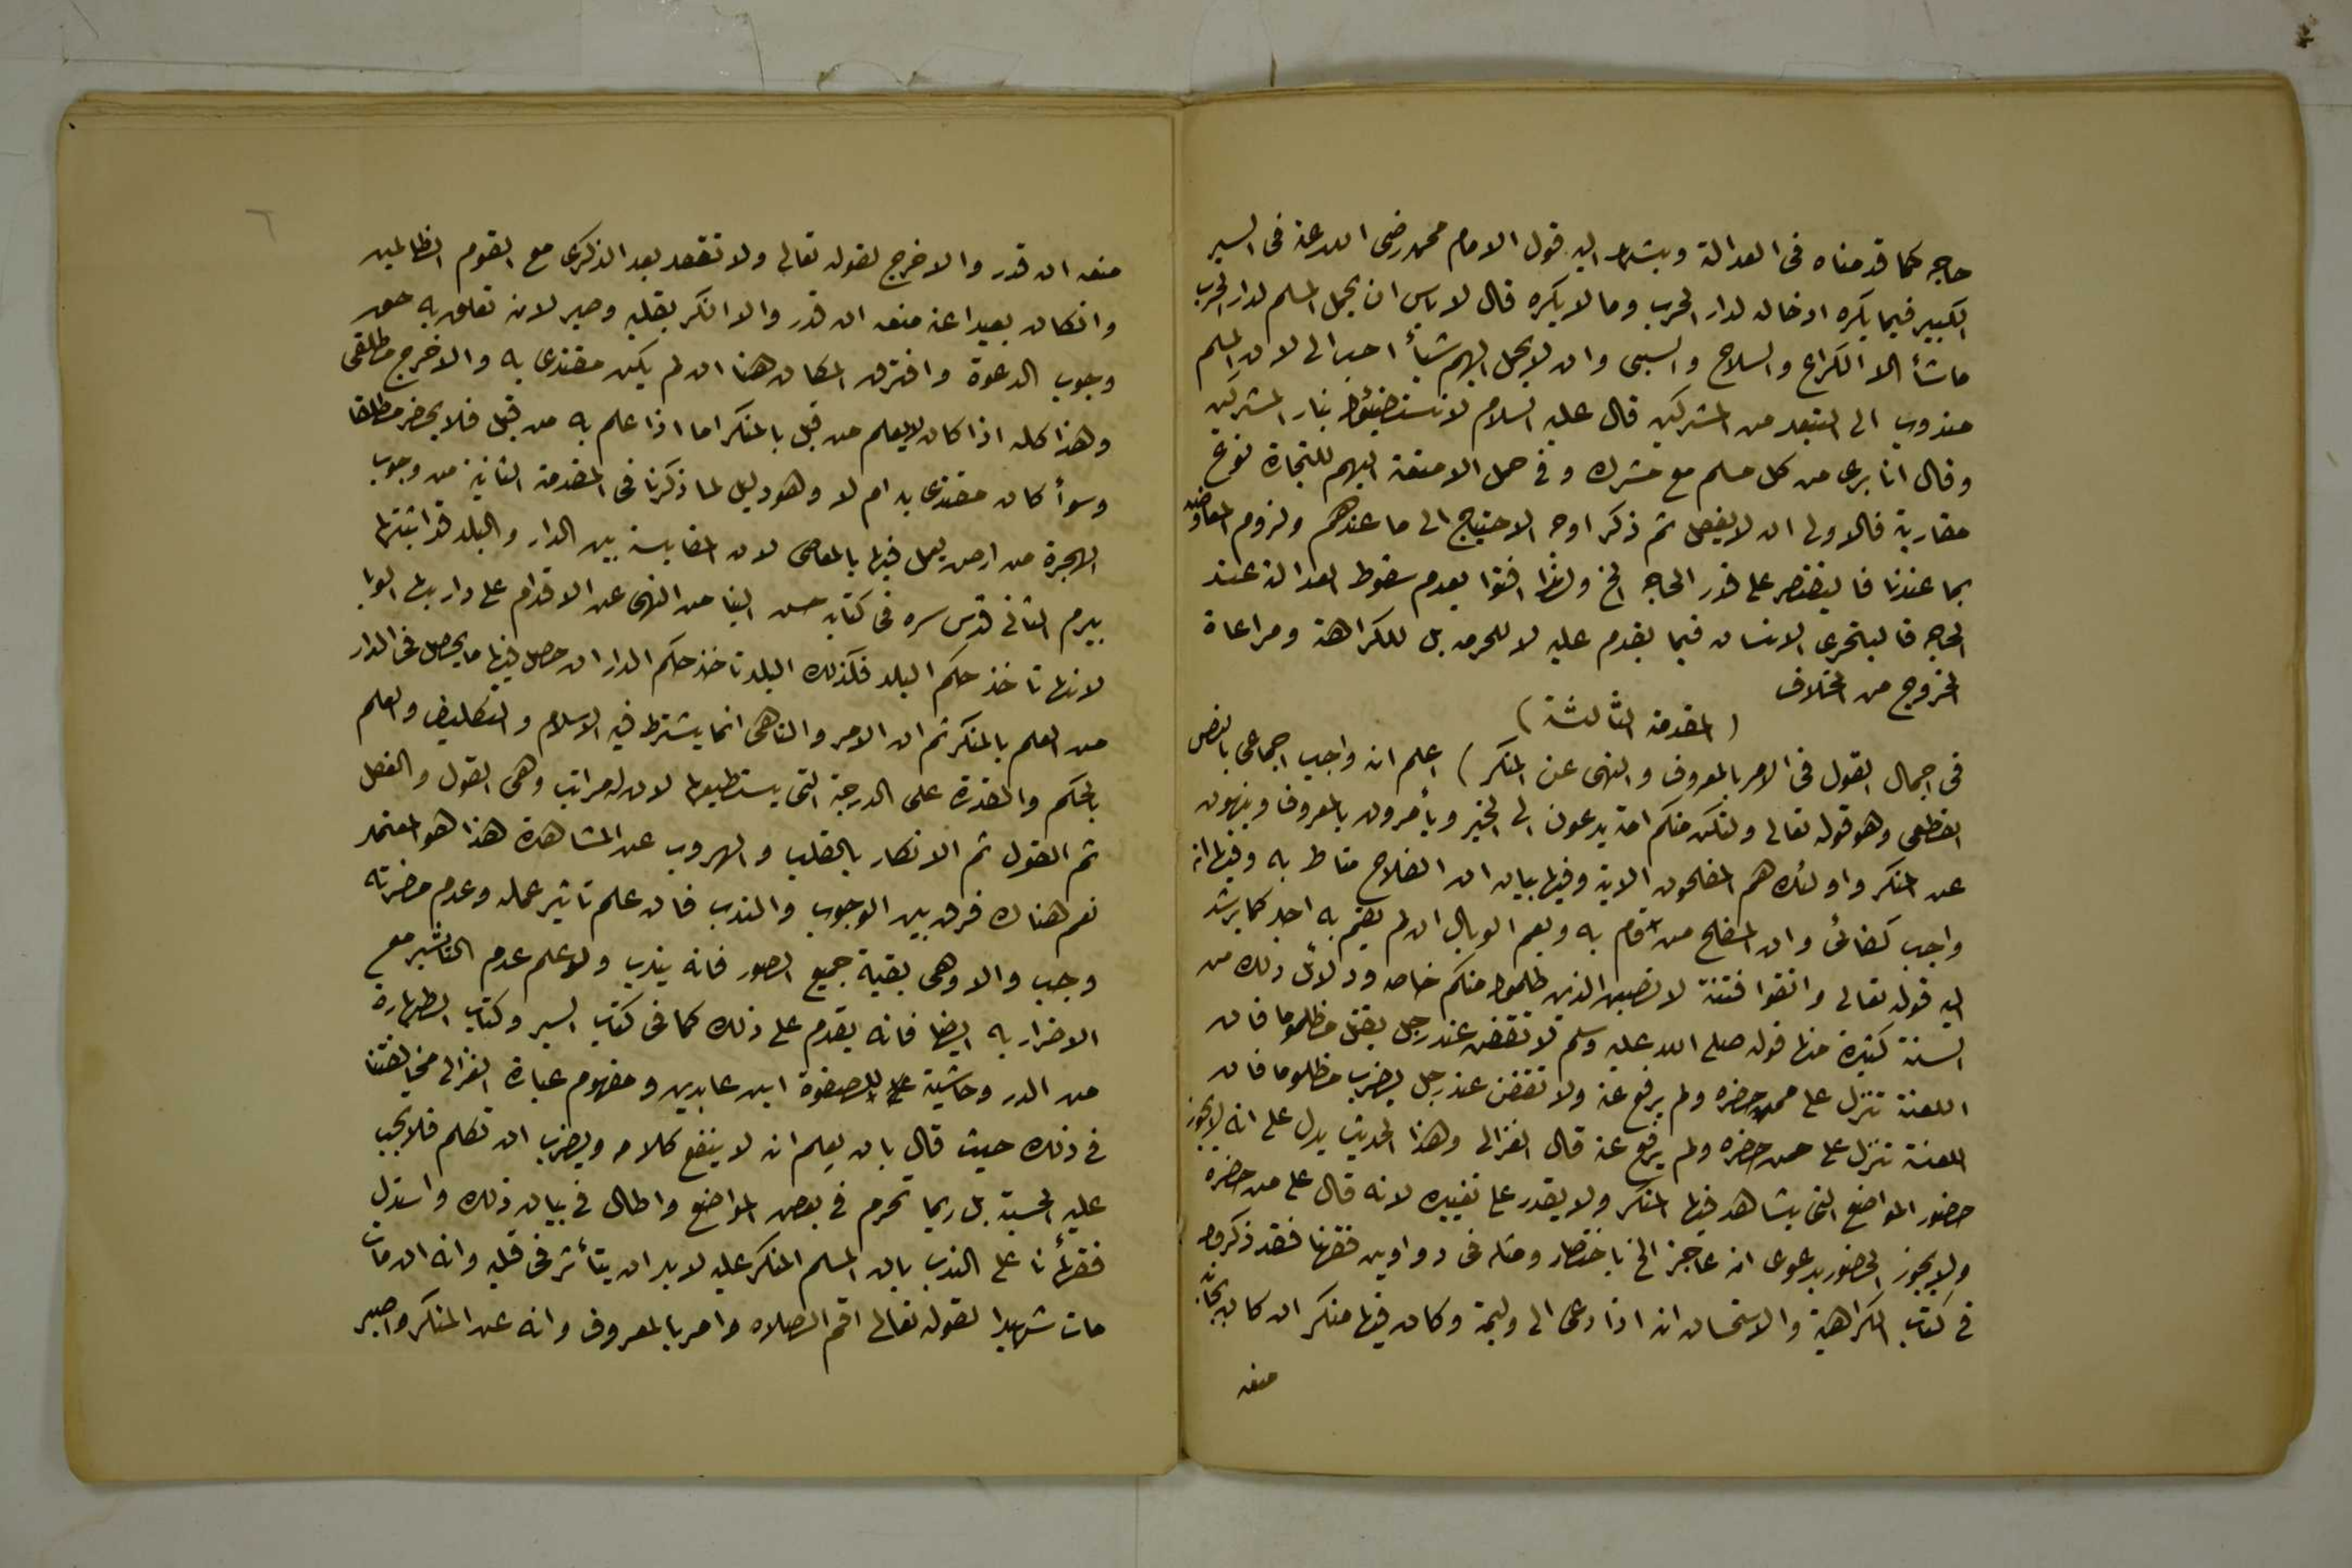 حاجه كما قدمناه فى العدالة ويشهد اليه قول الامام محمد رضى الله عنه فى السير
الكبير فيما يكره ادخاله لدار الحرب وما لا يكره قال لا باس ان يحمل المسلم لدار الحرب
ما شأ الا الكراع والسلاح والسبى وان لا يحمل اليهم شيأ احب الى لان المسلم
مندوب الى التبعد من المشركين قال عليه السلام لا تستضيئوا بنار المشركين
وقال انا برى من كل مسلم مع مشرك وفى حمل الامتعة اليهم للتجارة نوع
مقاربة فالاولى ان لا يفعل ثم ذكر اوجه الاحتياج الى ما عندهم ولزوم المعاوضه
بما عندنا فا ليقتصر على قدر الحاجه الخ ولهذا افتوا بعدم سقوط العدالة عند
الحاجه فا ليتحرى الانسان فيما يقدم عليه لا للحرمه بل للكراهة ومراعاة
الخروج من الخلاف
(المقدمة الثالثة)
فى اجمال القول فى الامر بالمعروف والنهى عن المنكر) اعلم انه واجب اجماعى بالنص
القطعى وهو قوله تعالى ولتكن منكم امة يدعون الى الخير ويأمرون بالمعروف وينهون
عن المنكر واولئك هم المفلحون الاية وفيها بيان ان الفلاح مناط به وفيها انه
واجب كفائى وان المفلح من قام به ويعم الوبال ان لم يقم به احد كما يرشد
اليه قوله تعالى واتقوا فتنة لا تصيبن الذين ظلموا منكم خاصه ودلائل ذلك من
السنة كثيرة منها قوله صلى الله عليه وسلم لا تقفن عند رجل يقتل مظلوما فان
اللعنة تنزل على من حضره ولم يدفع عنه ولا تقفن عند رجل يضرب مظلوما فان
اللعنة تنزل على من حضره ولم يدفع عنه قال الغزالى وهذا الحديث يدل على انه لا يجوز
حضور المواضع التى يشاهد فيها المنكر ولا يقدر على تغييره لانه قال على من حضره
ولا يجوز الحضور بدعوى انه عاجز الخ باختصار ومثله فى دواوين فقهنا فقد ذكروا
فى كتاب الكراهية والاستحسان انه اذا دعى الى وليمة وكان فيها منكر ان كان بجانبه
منعه
٦
منعه ان قدر والا خرج لقوله تعالى ولا تقعد بعد الذكرى مع القوم الظالمين
وان كان بعيدا عنه منعه ان قدر والا انكر بقلبه وصبر لانه تعلق به حق
وجوب الدعوة وافترق المكان هنا ان لم يكن مقتدى به والا خرج مطلقى
وهذا كله اذا كان لا يعلم من قبل بالمنكر اما اذا علم به من قبل فلا يحضر مطلقا
وسوأ كان مقتدى به ام لا وهو دليل لما ذكرنا فى المقدمة الثانية من وجوب
الهجرة من ارض يعمل فيها بالمعاصى لان المقايسة بين الدار والبلد قد اثبتها
بيرم الثانى قدس سره فى كتابه حسن النبا من النهى عن الاقدام على دار بها الوبا
لانها تاخذ حكم البلد فكذلك البلد تاخذ حكم الدار ان حصل فيها ما يحصل فى الدار
من العلم بالمنكر ثم ان الامر والناهى انما يشترط فيه الاسلام والتكليف والعلم
بالحكم والمقدرة على الدرجة التى يستطيعها لان له مراتب وهى القول والفعل
ثم القول ثم الانكار بالقلب والهروب عن المشاهدة هذا هو المعتمد
نعم هناك فرق بين الوجوب والندب فان علم تاثير عمله وعدم مضرته
وجب والا وهى بقية جميع الصور فانه يندب ولو علم عدم التاثير مع
الاضرار به ايضا فانه يقدم على ذلك كما فى كتاب السير وكتاب الطهارة
من الدر وحاشية للصفوة ابن عابدين ومفهوم عبارة الغزالى مخالفتنا
فى ذلك حيث قال بان يعلم انه لا ينفع كلامه ويضرب ان تكلم فلا يجب
عليه الحسبة بل ربما تحرم فى بعض المواضع واطال فى بيان ذلك واستدل
فقهأنا على الندب بان المسلم المنكر عليه لا بد ان يتأثر فى قلبه وانه ان مات
مات شهيدا لقوله تعالى اقم الصلاه وامر بالمعروف وانه عن المنكر واصبر